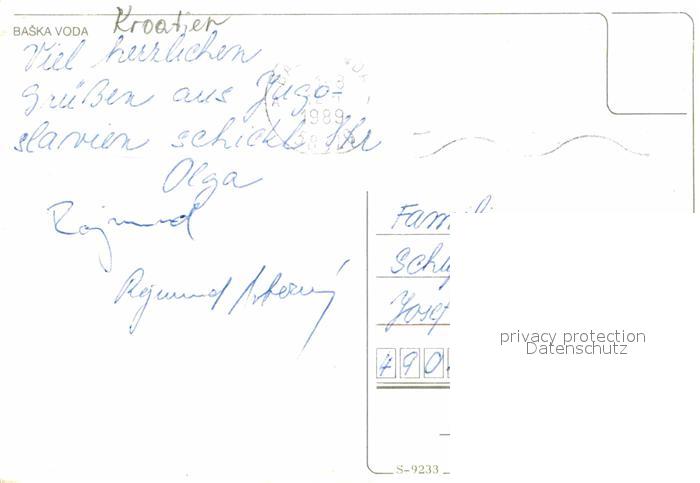 BAŠKA VODA Kroatien
Viel herzlichen
Grüßen aus Jugo-
slavien schickt Ihr
Olga
Rajmund
Rajmund
1989
18
Fam
Schu
Josef
490
privacy protection
Datenschutz
S-9233